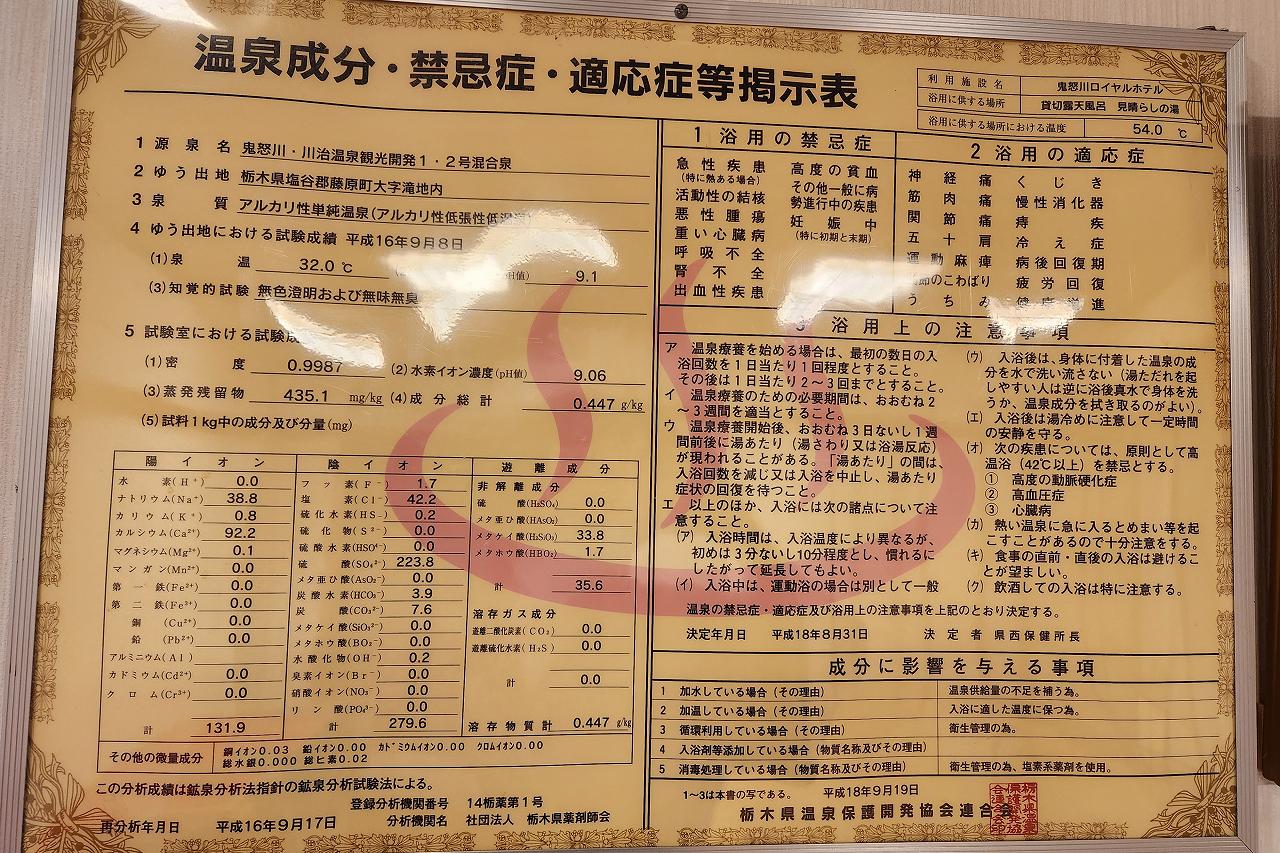 温泉成分・禁忌症・適応症等掲示表
利用施設名 鬼怒川ロイヤルホテル
浴用に供する場所 貸切露天風呂 見晴らしの湯
浴用に供する場所における温度 54.0 ℃
1 源泉名 鬼怒川・川治温泉観光開発1・2号混合泉
2 ゆう出地 栃木県塩谷郡藤原町大字滝地内
3 泉質 アルカリ性単純温泉(アルカリ性低張性低温泉)
4 ゆう出地における試験成績 平成16年9月8日
(1)泉温 32.0 ℃ pH値) 9.1
(3)知覚的試験 無色澄明および無味無臭
5 試験室における試験成
(1)密度 0.9987 (2)水素イオン濃度(pH値) 9.06
(3)蒸発残留物 435.1 mg/kg (4)成分総計 0.447 g/kg
(5)試料1kg中の成分及び分量(mg)
陽イオン
水素(H⁺) 0.0
ナトリウム(Na⁺) 38.8
カリウム(K⁺) 0.8
カルシウム(Ca²⁺) 92.2
マグネシウム(Mg²⁺) 0.1
マンガン(Mn²⁺) 0.0
第一鉄(Fe²⁺) 0.0
第二鉄(Fe³⁺) 0.0
銅(Cu²⁺) 0.0
鉛(Pb²⁺) 0.0
アルミニウム(Al)
カドミウム(Cd²⁺) 0.0
クロム(Cr³⁺) 0.0
計 131.9
陰イオン
フッ素(F⁻) 1.7
塩素(Cl⁻) 42.2
硫化水素(HS⁻) 0.2
硫化物(S²⁻) 0.0
硫酸水素(HSO₄⁻) 0.0
硫酸(SO₄²⁻) 223.8
メタ亜酸(AsO₂⁻) 0.0
炭酸水素(HCO₃⁻) 3.9
炭酸(CO₃²⁻) 7.6
メタケイ酸(SiO₃²⁻) 0.0
メタホウ酸(BO₂⁻) 0.0
水酸化物(OH⁻) 0.2
臭素イオン(Br⁻) 0.0
硝酸イオン(NO₃⁻) 0.0
リン酸(PO₄³⁻) 0.0
計 279.6
遊離成分
非解離成分
硫酸(H₂SO₄) 0.0
メタ亜ひ酸(HAsO₂) 0.0
メタケイ酸(H₂SiO₃) 33.8
メタホウ酸(HBO₂) 1.7
計 35.6
溶存ガス成分
遊離二酸化炭素(CO₂) 0.0
遊離硫化水素(H₂S) 0.0
計 0.0
溶存物質計 0.447 g/kg
その他の微量成分
銅イオン0.03 鉛イオン0.00 カドミウムイオン0.00 クロムイオン0.00
総水銀0.000 総ヒ素0.02
この分析成績は鉱泉分析法指針の鉱泉分析試験法による。
登録分析機関番号 14栃薬第1号
分析機関名 社団法人 栃木県薬剤師会
再分析年月日 平成16年9月17日
1 浴用の禁忌症
急性疾患
(特に熱ある場合)
活動性の結核
悪性腫瘍
重い心臓病
呼吸不全
腎不全
出血性疾患
高度の貧血
その他一般に病
勢進行中の疾患
妊娠中
(特に初期と末期)
2 浴用の適応症
神経痛
筋肉痛
関節痛
五十肩
運動麻痺
節のこわばり
うちみ
くじき
慢性消化器
痔疾
冷え症
病後回復期
疲労回復
健康増進
3 浴用上の注意事項
ア 温泉療養を始める場合は、最初の数日の入
浴回数を1日当たり1回程度とすること。
その後は1日当たり2～3回までとすること。
イ 温泉療養のための必要期間は、おおむね2
～3週間を適当とすること。
ウ 温泉療養開始後、おおむね3日ないし1週
間前後に湯あたり(湯さわり又は浴湯反応)
が現われることがある。「湯あたり」の間は、
入浴回数を減じ又は入浴を中止し、湯あたり
症状の回復を待つこと。
エ 以上のほか、入浴には次の諸点について注
意すること。
(ア) 入浴時間は、入浴温度により異なるが、
初めは3分ないし10分程度とし、慣れるに
したがって延長してもよい。
(イ) 入浴中は、運動浴の場合は別として一般
(ウ) 入浴後は、身体に付着した温泉の成
分を水で洗い流さない(湯ただれを起
しやすい人は逆に浴後真水で身体を洗
うか、温泉成分を拭き取るのがよい)。
(エ) 入浴後は湯冷めに注意して一定時間
の安静を守る。
(オ) 次の疾患については、原則として高
温浴(42℃以上)を禁忌とする。
① 高度の動脈硬化症
② 高血圧症
③ 心臓病
(カ) 熱い温泉に急に入るとめまい等を起
こすことがあるので十分注意をする。
(キ) 食事の直前・直後の入浴は避けるこ
とが望ましい。
(ク) 飲酒しての入浴は特に注意する。
温泉の禁忌症・適応症及び浴用上の注意事項を上記のとおり決定する。
決定年月日 平成18年8月31日 決定者 県西保健所長
成分に影響を与える事項
1 加水している場合(その理由) 温泉供給量の不足を補う為。
2 加温している場合(その理由) 入浴に適した温度に保つ為。
3 循環利用している場合(その理由) 衛生管理の為。
4 入浴剤等添加している場合(物質名称及びその理由)
5 消毒処理している場合(物質名称及びその理由) 衛生管理の為、塩素系薬剤を使用。
1～3は本書の写である。 平成18年9月19日
栃木県温泉保護開発協会連合会